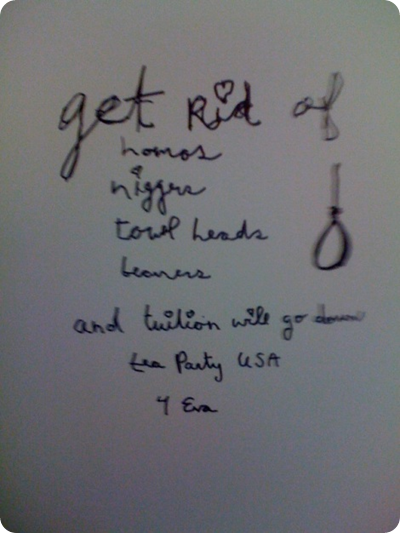 get Rid of
homos
niggers
towl heads
beaners
and tuition will go down
tea Party USA
4 Eva